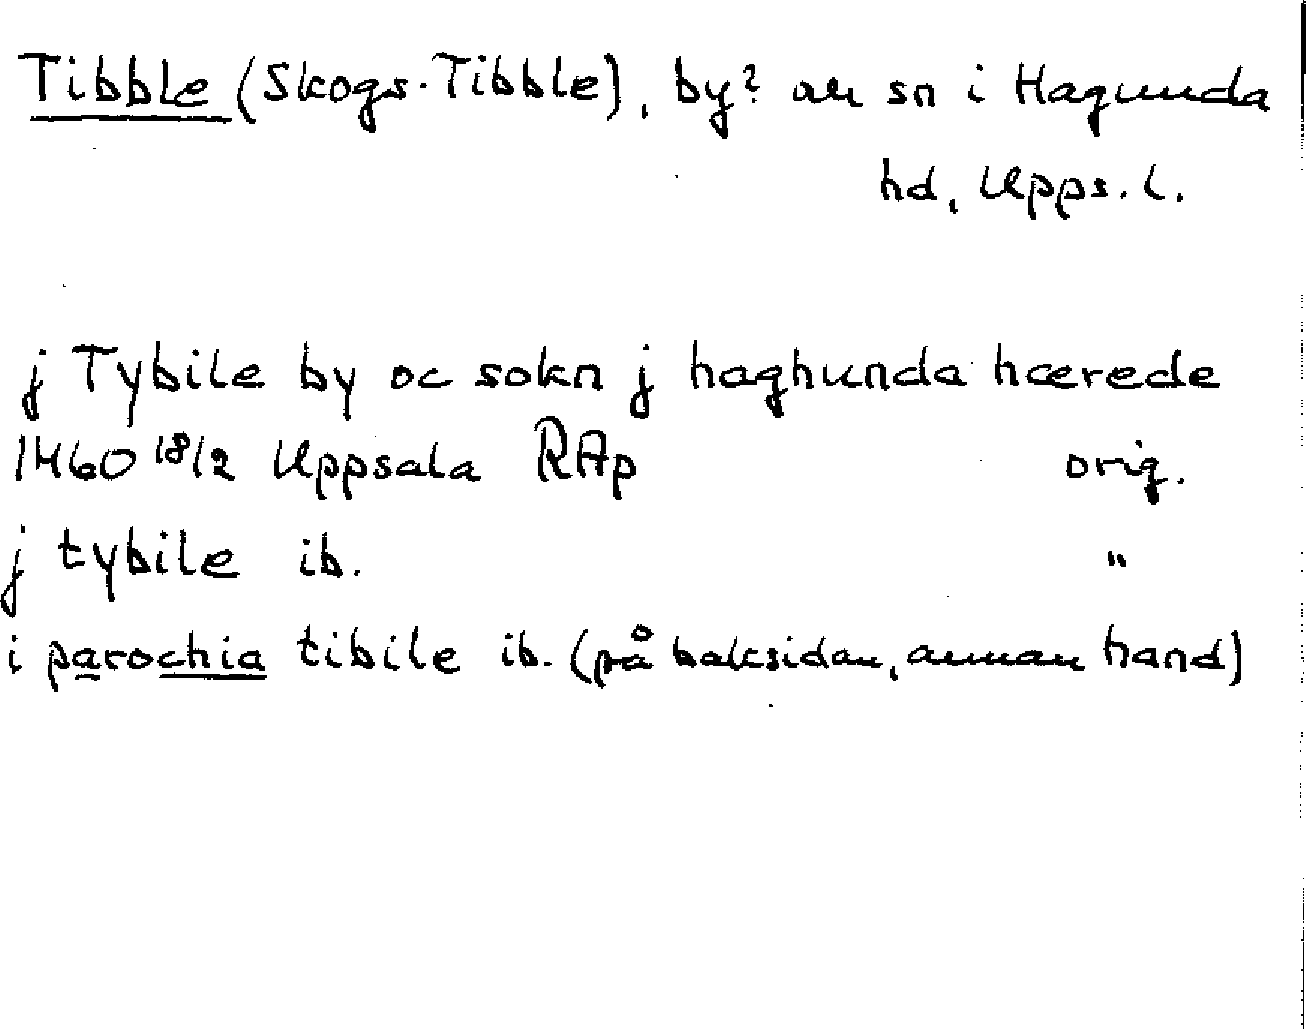 Tibble (Skogs-Tibble), by? au sn i Hagunda
hd, Upps. l.
j Tybile by oc sokn j haghunda hærede
1460 18/2 Uppsala RAp orig.
j tybile ib. "
i parochia tibile ib. (på baksidan, annan hand)